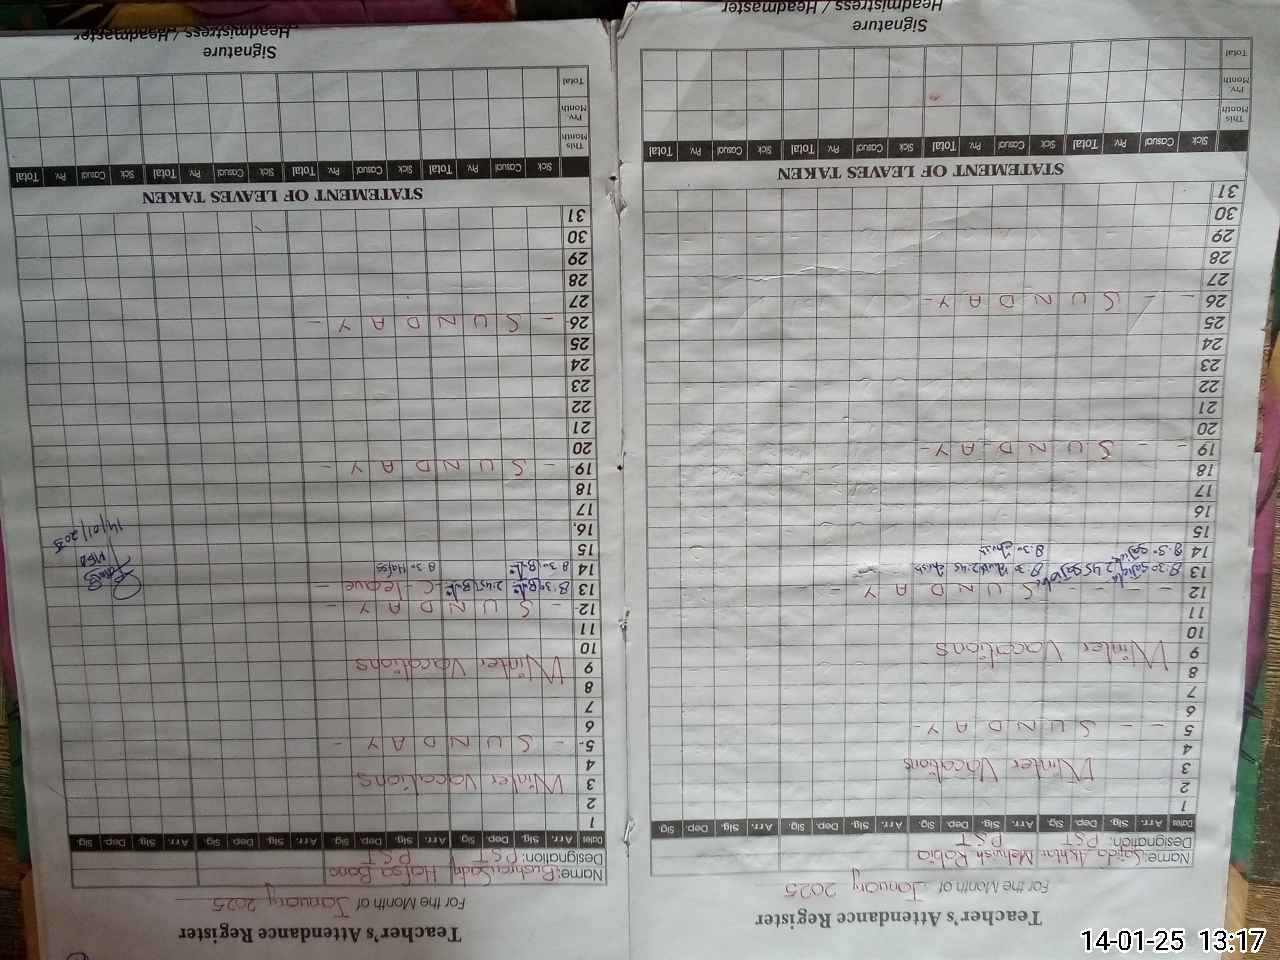 Teacher's Attendance Register
For the Month of January 2025
Name: Bushra Sadi Hafsa Bano
Designation: PST PST
Dates Arr. Sig. Dep. Sig. Arr. Sig. Dep. Sig. Arr. Sig. Dep. Sig. Arr. Sig. Dep. Sig
1
2
3 Winter Vacations
4
5 - SUNDAY -
6
7
8
9 Winter Vacations
10
11
12 - SUNDAY -
13 8:30 2:45 C-leave -
14 8:30 8:30 Hafsa
15
16
17
18
19 - SUNDAY -
20
21
22
23
24
25
26 - SUNDAY -
27
28
29
30
31
14/01/2025
STATEMENT OF LEAVES TAKEN
Sick Casual Prv. Total Sick Casual Prv. Total Sick Casual Prv. Total Sick Casual Prv. Total
This Month
Prv. Month
Total
Signature
Headmistress / Headmaster
Teacher's Attendance Register
For the Month of January 2025
Name: Sajida Akhtar Mehwish Rabia
Designation: PST PST
Dates Arr. Sig. Dep. Sig. Arr. Sig. Dep. Sig. Arr. Sig. Dep. Sig. Arr. Sig. Dep. Sig
1
2
3 Winter Vacations
4
5 - - SUNDAY -
6
7
8
9 Winter Vacations
10
11
12 - - - - SUNDAY - -
13 8:30 Sajida 2:45 Sajida 8:30 2:45
14 8:30 Sajida 8:30
15
16
17
18
19 - - SUNDAY -
20
21
22
23
24
25
26 - - SUNDAY -
27
28
29
30
31
STATEMENT OF LEAVES TAKEN
Sick Casual Prv. Total Sick Casual Prv. Total Sick Casual Prv. Total Sick Casual Prv. Total
This Month
Prv. Month
Total
Signature
Headmistress / Headmaster
14-01-25 13:17